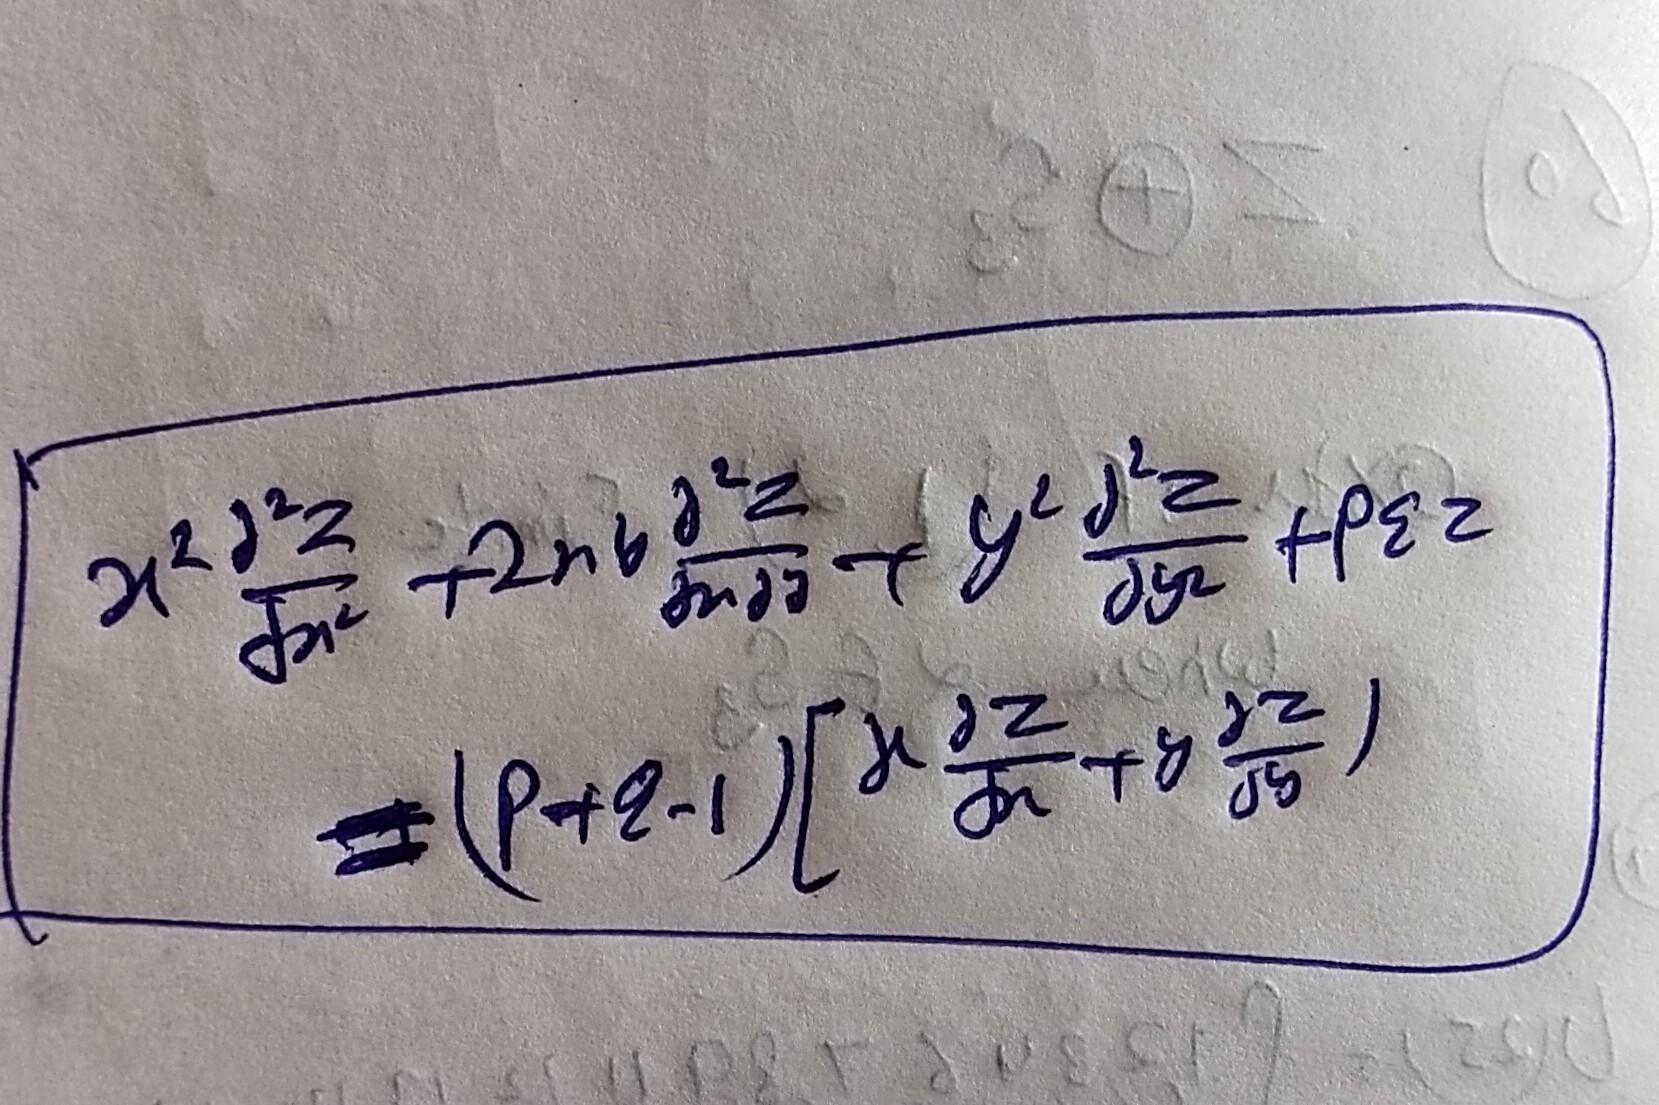 x² ∂²z/∂x² + 2xy ∂²z/∂x∂y + y² ∂²z/∂y² + pqz
= (p+q-1) [x ∂z/∂x + y ∂z/∂y)